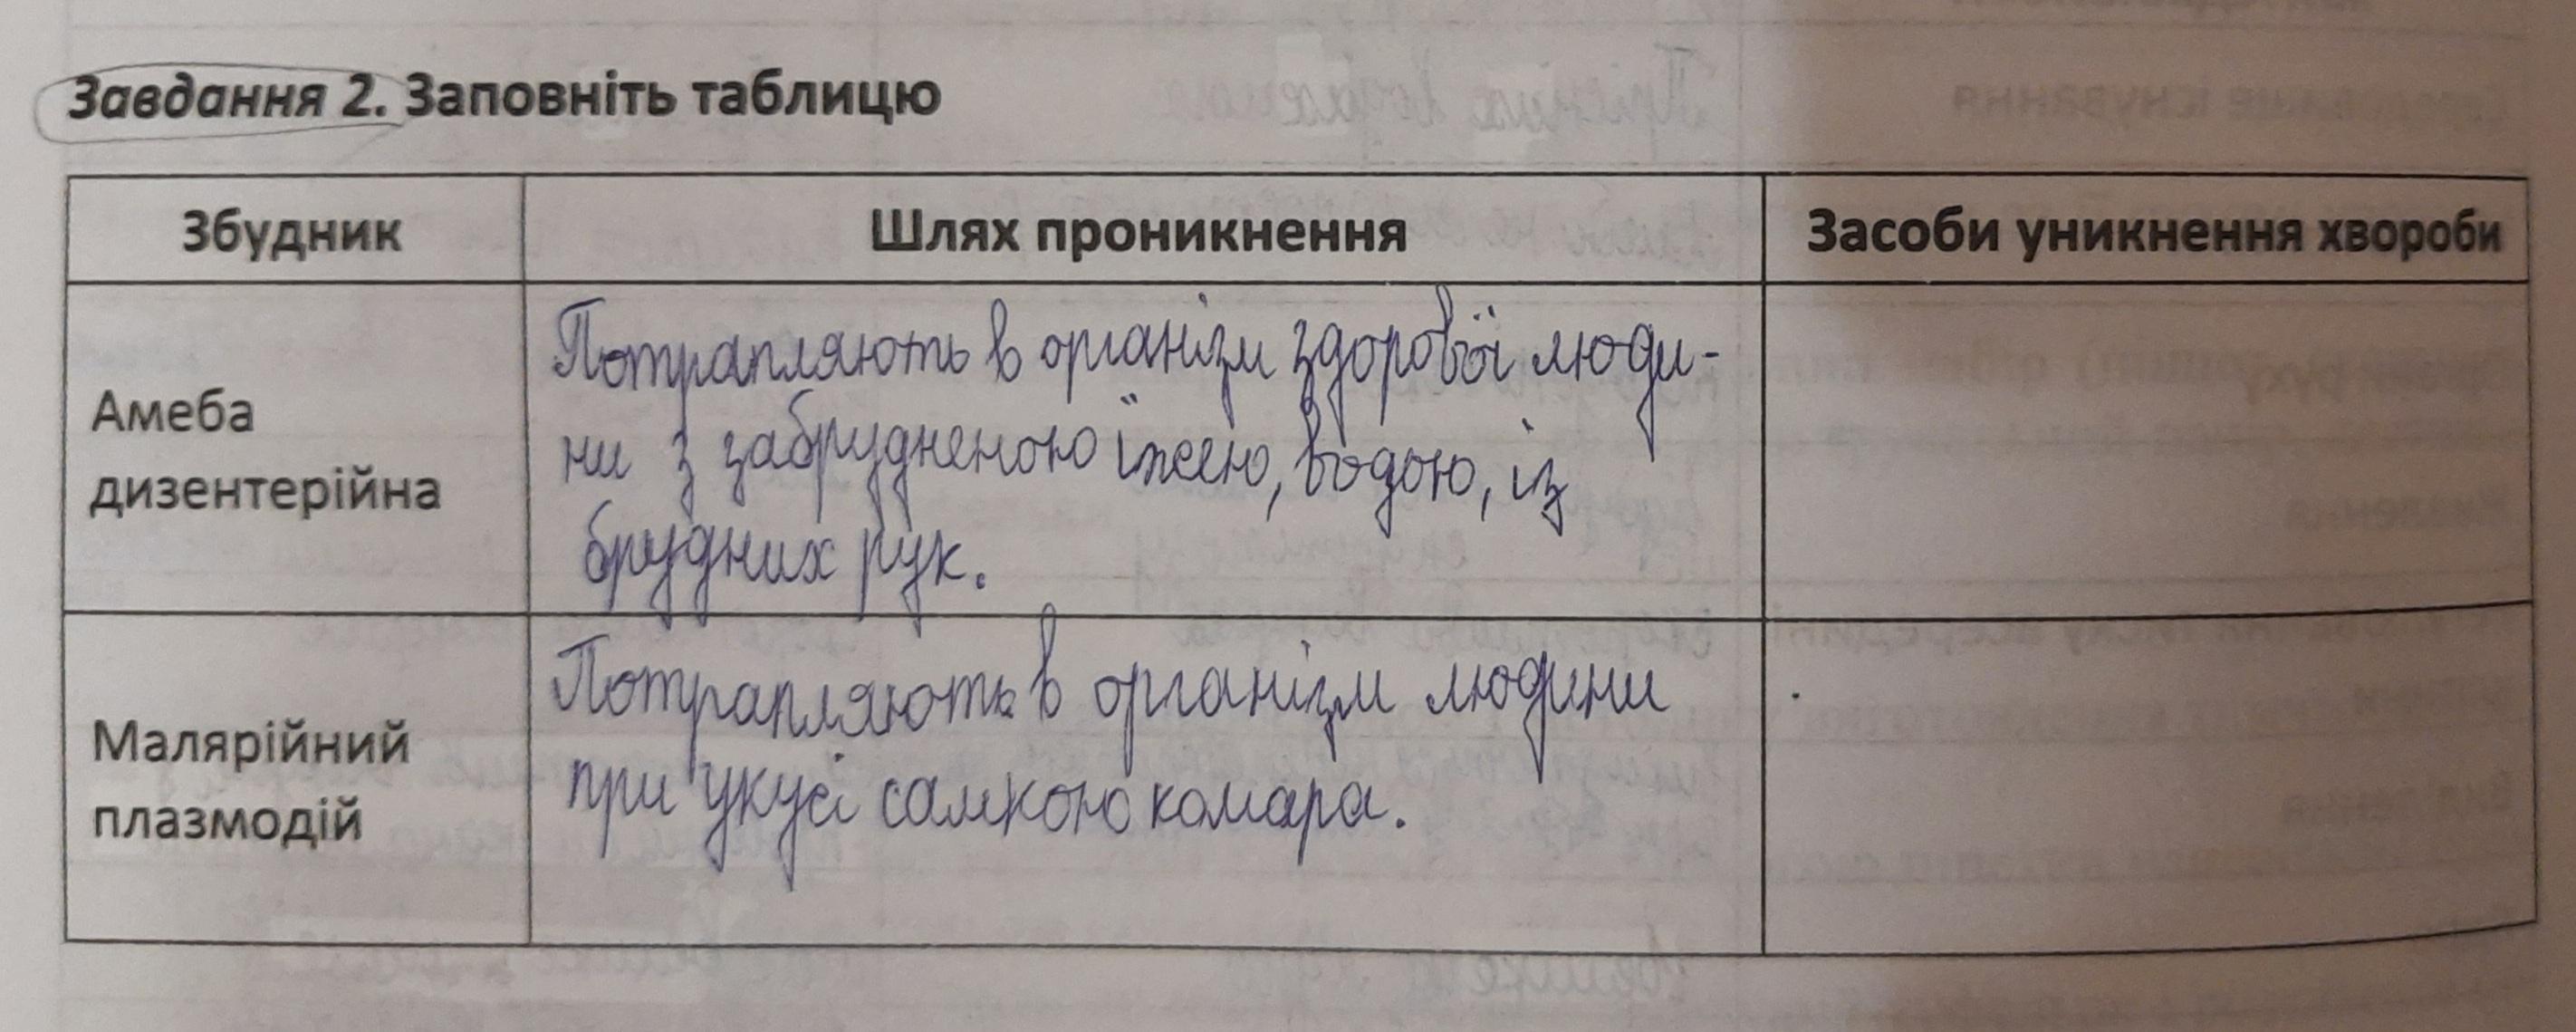 Завдання 2. Заповніть таблицю
Збудник
Шлях проникнення
Засоби уникнення хвороби
Амеба
дизентерійна
Потрапляють в організм здорової люди-
ни з забрудненою їжею, водою, із
брудних рук.
Малярійний
плазмодій
Потрапляють в організм людини
при укусі самкою комара.